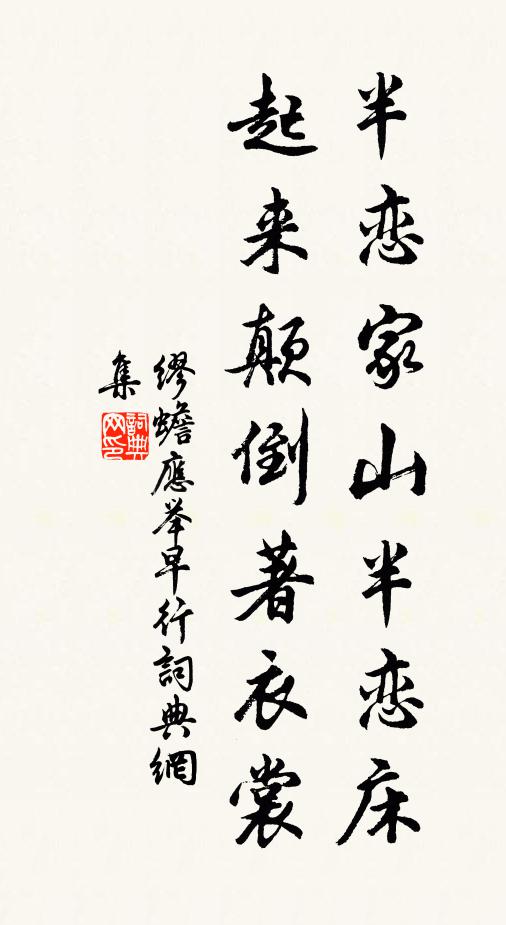 半恋家山半恋床
起来颠倒著衣裳
繆蟾應举早行詞典網
集
詞典网印